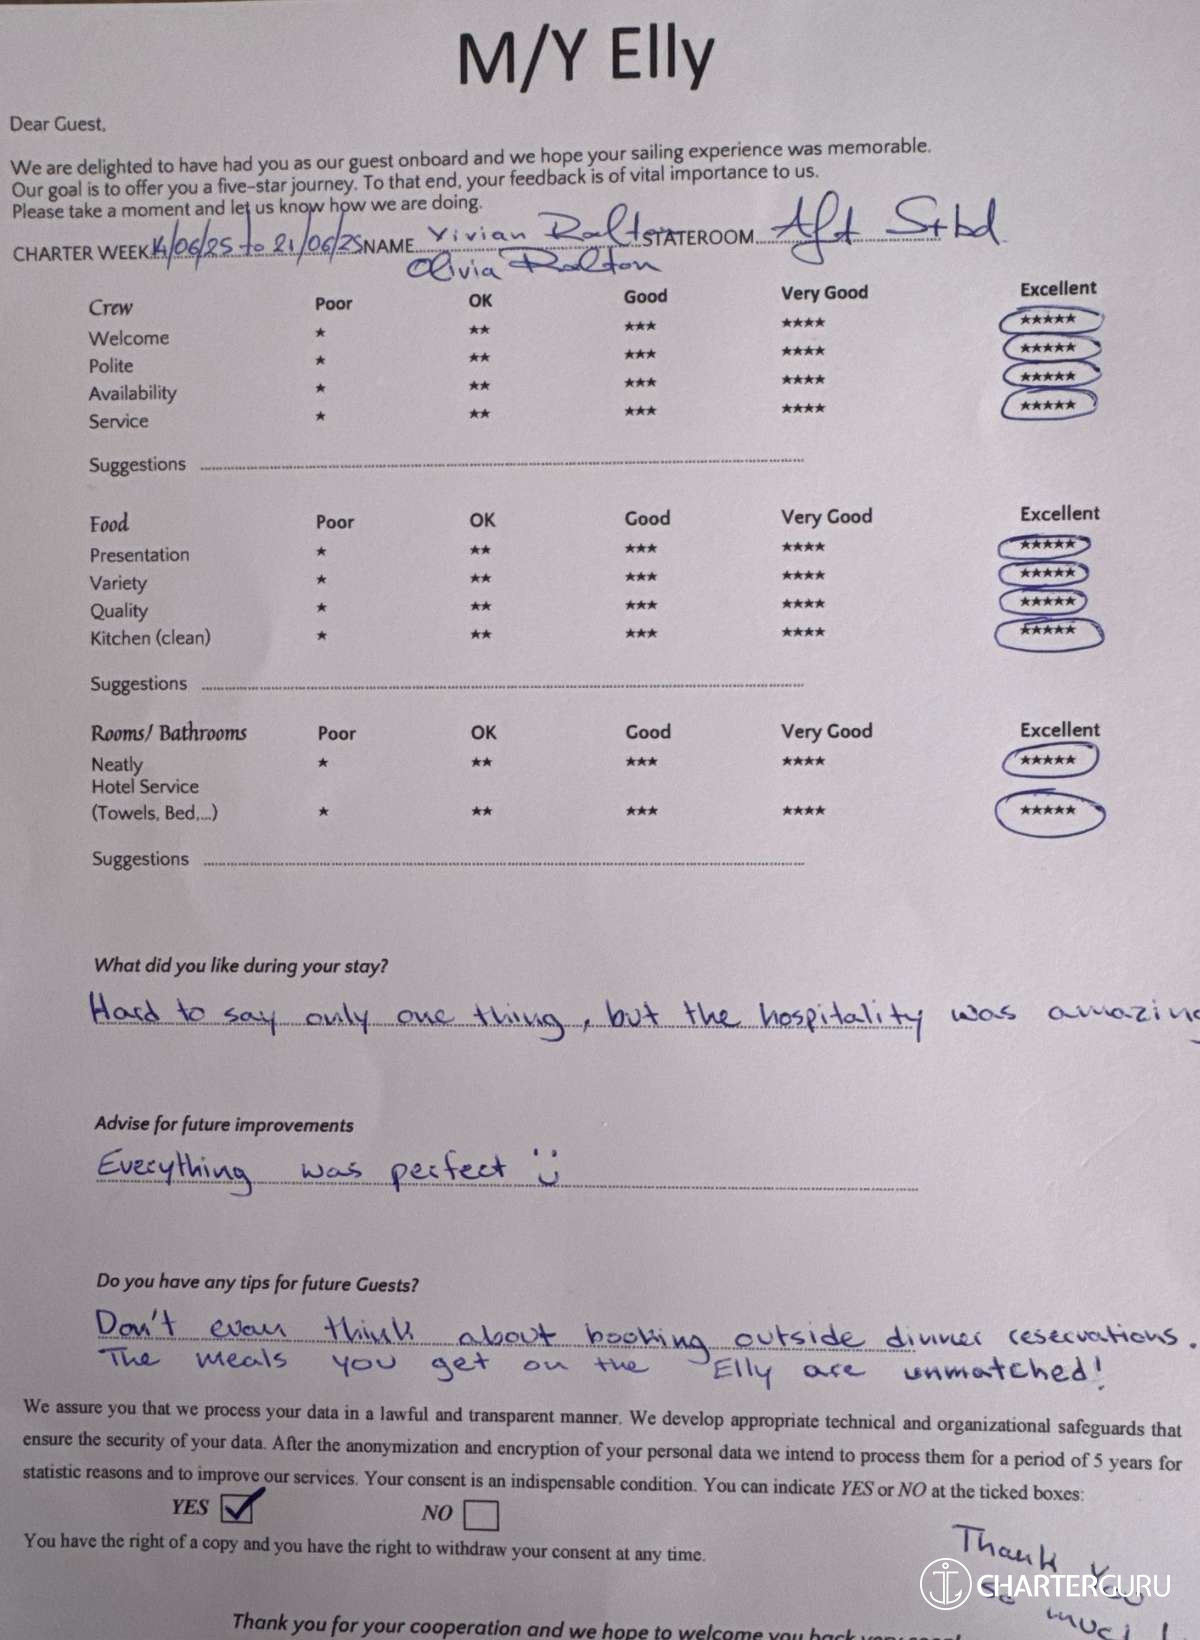 M/Y Elly
Dear Guest,
We are delighted to have had you as our guest onboard and we hope your sailing experience was memorable.
Our goal is to offer you a five-star journey. To that end, your feedback is of vital importance to us.
Please take a moment and let us know how we are doing.
CHARTER WEEK 14/06/25 to 21/06/25 NAME Vivian Ralton STATEROOM Aft Stbd
Olivia Ralton
Crew Poor OK Good Very Good Excellent
Welcome ★ ★★ ★★★ ★★★★ ★★★★★
Polite ★ ★★ ★★★ ★★★★ ★★★★★
Availability ★ ★★ ★★★ ★★★★ ★★★★★
Service ★ ★★ ★★★ ★★★★ ★★★★★
Suggestions
Food Poor OK Good Very Good Excellent
Presentation ★ ★★ ★★★ ★★★★ ★★★★★
Variety ★ ★★ ★★★ ★★★★ ★★★★★
Quality ★ ★★ ★★★ ★★★★ ★★★★★
Kitchen (clean) ★ ★★ ★★★ ★★★★ ★★★★★
Suggestions
Rooms/ Bathrooms Poor OK Good Very Good Excellent
Neatly ★ ★★ ★★★ ★★★★ ★★★★★
Hotel Service
(Towels, Bed,...) ★ ★★ ★★★ ★★★★ ★★★★★
Suggestions
What did you like during your stay?
Hard to say only one thing, but the hospitality was amazing
Advise for future improvements
Everything was perfect :)
Do you have any tips for future Guests?
Don't even think about booking outside dinner reservations.
The meals you get on the Elly are unmatched!
We assure you that we process your data in a lawful and transparent manner. We develop appropriate technical and organizational safeguards that
ensure the security of your data. After the anonymization and encryption of your personal data we intend to process them for a period of 5 years for
statistic reasons and to improve our services. Your consent is an indispensable condition. You can indicate YES or NO at the ticked boxes:
YES NO
You have the right of a copy and you have the right to withdraw your consent at any time.
Thank You
so much!
CHARTERGURU
Thank you for your cooperation and we hope to welcome you back very soon!